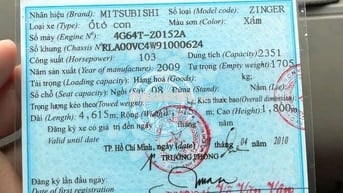 Nhãn hiệu (Brand): MITSUBISHI Số loại (Model code): ZINGER
Loại xe (Type): Ôtô con Màu sơn (Color): Xám
Số máy (Engine N°): 4G64T-Z0152A
Số khung (Chassis N°) RLA00VC4W91000624
Công suất (Horsepower): 103 Dung tích (Capacity) 2351
Năm sản xuất (Year of manufacture): 2009 Tự trọng (Empty weight) 1705
Tải trọng (Loading capacity): Hàng hoá (Goods) kg;
Số chỗ (Seat capacity): Ngồi (Sit) 08
Trọng lượng kéo theo (Towed weight) kg Kích thước bao (Overall dimension)
Dài (Length) 4,615 m, Rộng Cao (High) 1,800 m
Đăng ký xe có giá trị đến ngày tháng
Valid until date
TP. Hồ Chí Minh, ngày (date) 04 2010
TRƯỞNG PHÒNG
Đăng ký lần đầu ngày
Date of first registration